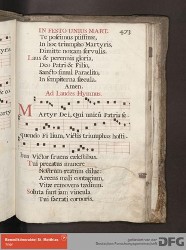 IN FESTO UNIUS MART. 473
Te poscimus piissime,
In hoc triumpho Martyris,
Dimitte noxam servulis.
Laus & perennis gloria,
Deo Patri & Filio,
Sancto simul Paraclito,
In sempiterna sæcula.
Amen.
Ad Laudes Hymnus.
Martyr Dei, Qui unicũ Patris se-
quendo Filium, Victis triumphas hosti-
bus Victor fruens cælestibus.
Tui precatus munere
Nostrum reatum dilue:
Arcens mali contagium,
Vitæ removens tædium.
Soluta sunt jam vincula
Tui sacrati corporis.
DFG